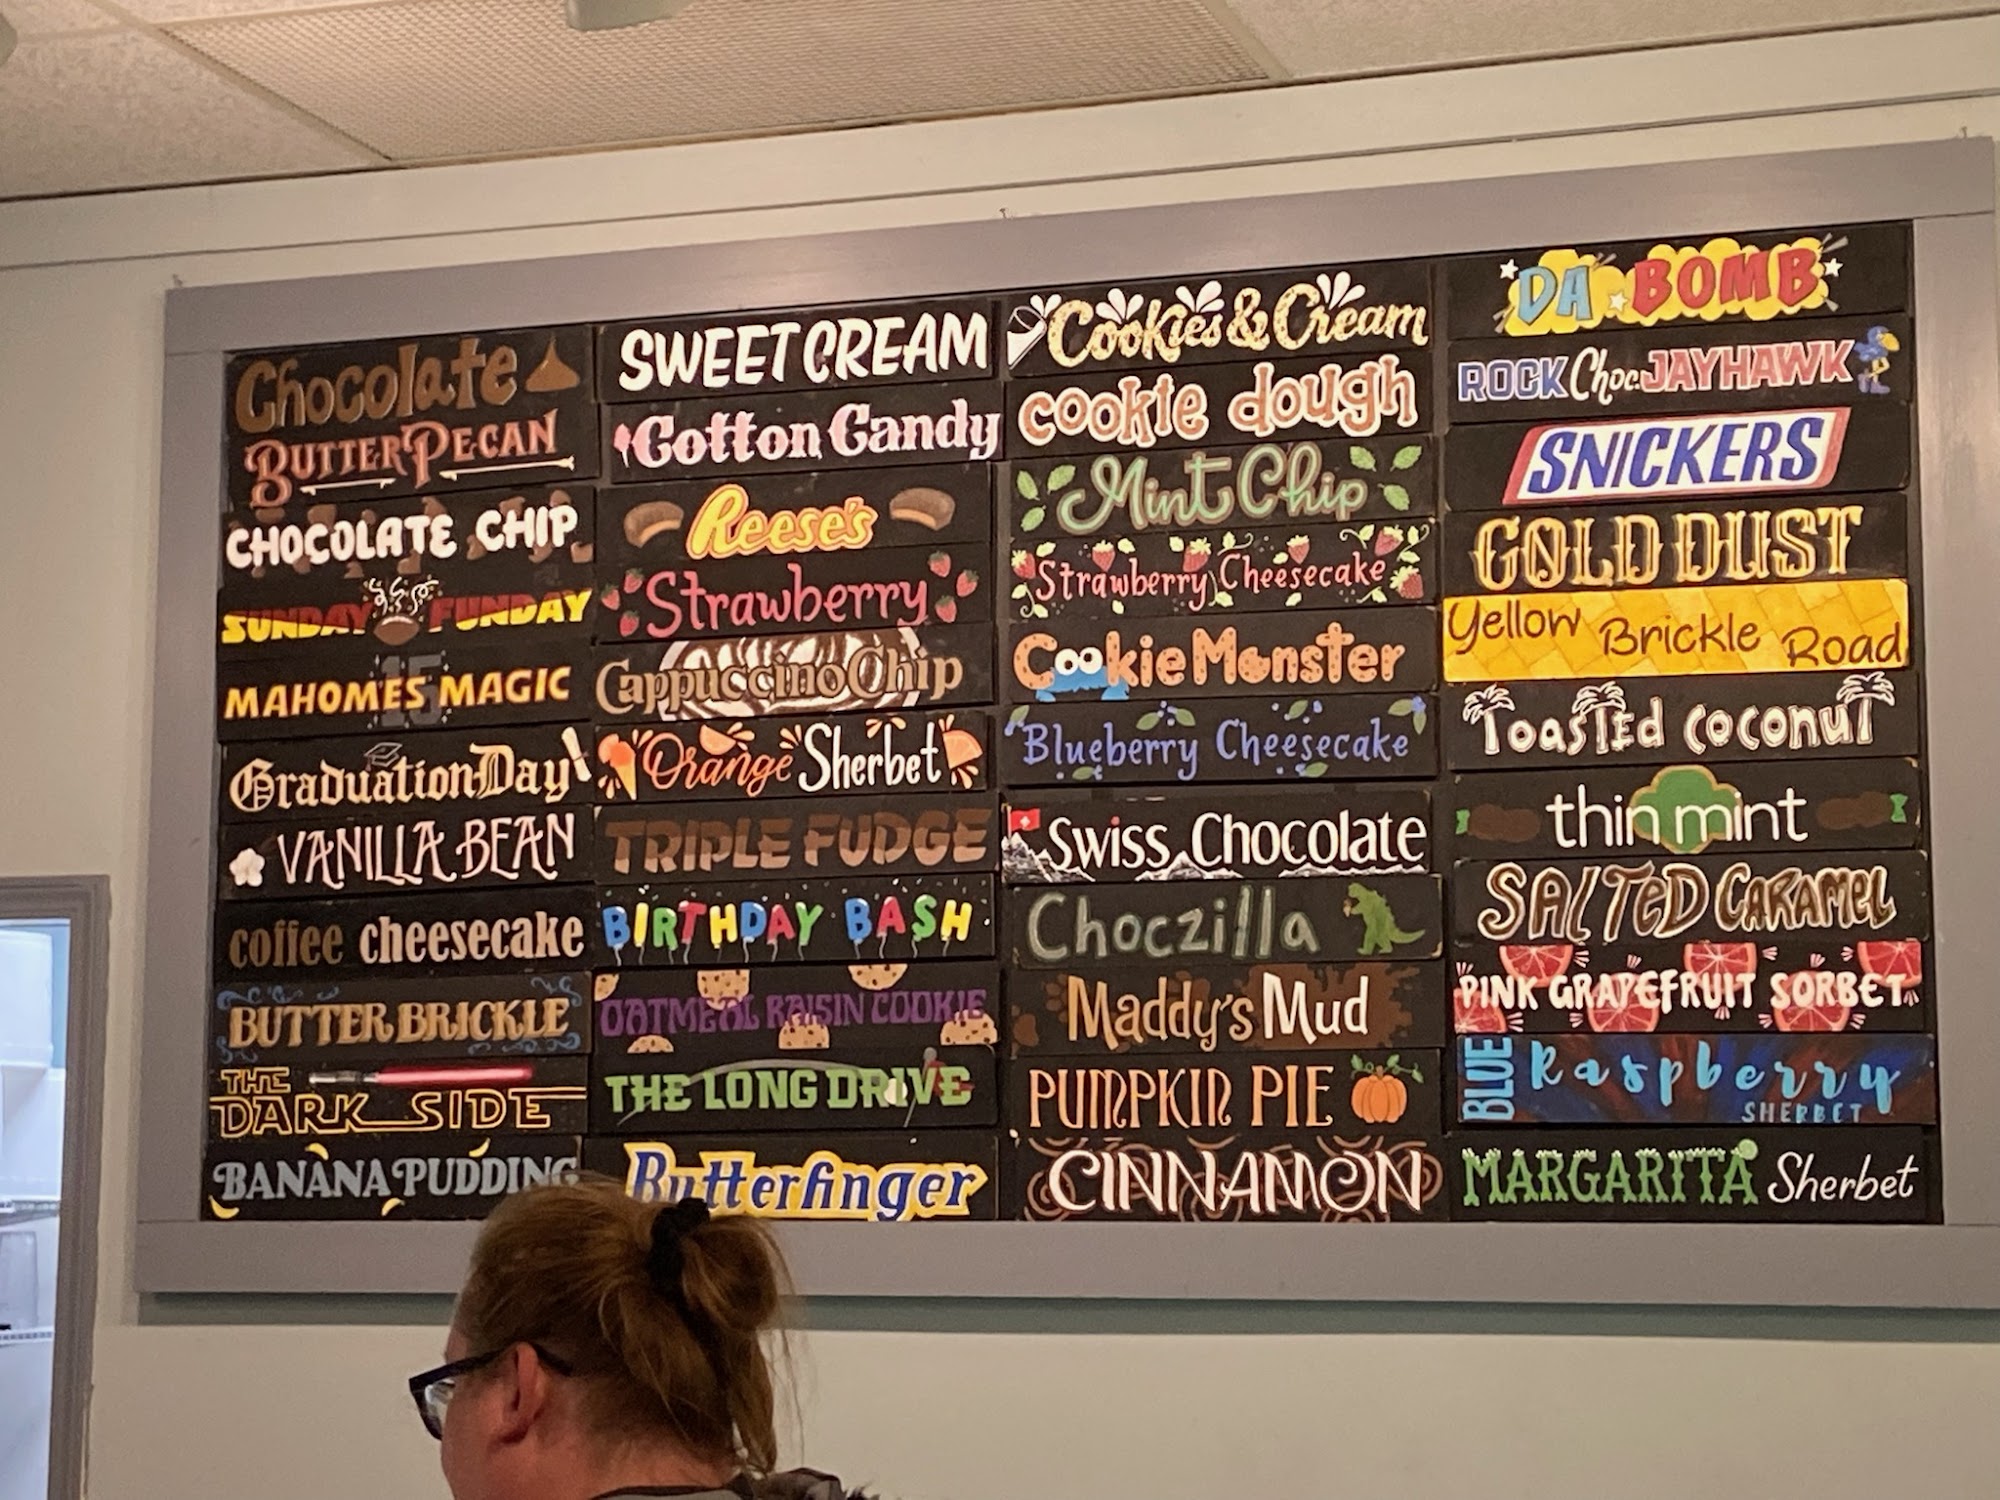 Chocolate
BUTTER PECAN
CHOCOLATE CHIP
SUNDAY FUNDAY
15
MAHOMES MAGIC
Graduation Day
VANILLA BEAN
coffee cheesecake
BUTTER BRICKLE
THE
DARK SIDE
BANANA PUDDING
SWEET CREAM
Cotton Candy
Reese's
Strawberry
Cappuccino Chip
Orange Sherbet
TRIPLE FUDGE
BIRTHDAY BASH
OATMEAL RAISIN COOKIE
THE LONG DRIVE
Butterfinger
Cookies & Cream
cookie dough
Mint Chip
Strawberry Cheesecake
Cookie Monster
Blueberry Cheesecake
Swiss Chocolate
Choczilla
Maddy's Mud
PUMPKIN PIE
CINNAMON
DA BOMB
ROCK Choc. JAYHAWK
SNICKERS
GOLD DUST
Yellow Brickle Road
Toasted coconut
thin mint
SALTED CARAMEL
PINK GRAPEFRUIT SORBET
BLUE Raspberry
SHERBET
MARGARITA Sherbet